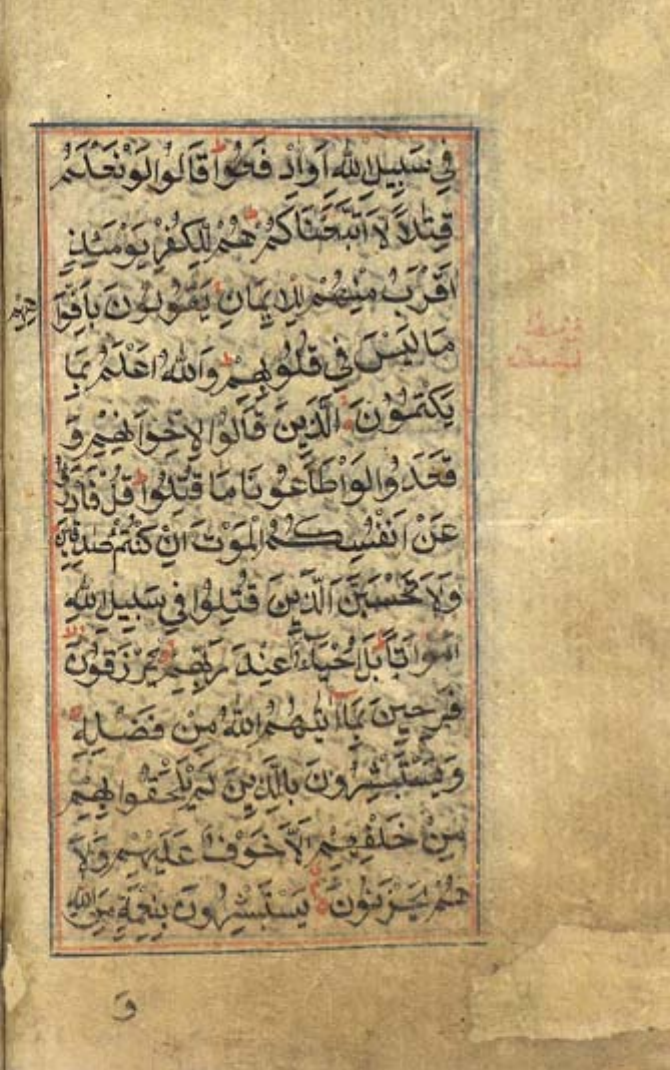 فِي سَبِيلِ اللهِ اَوِادْ فَعُوْا قَالُوا لَوْ نَعْلَمُ
قِتَالًا لَا اتَّبَعْنَاكُمْ هُمْ لِلْكُفْرِ يَوْمَئِذٍ
اَقْرَبُ مِنْهُمْ لِلْاِيمَانِ يَقُولُونَ بِاَفْوَا
هِهِمْ
مَا لَيْسَ فِي قُلُوبِهِمْ وَاللهُ اَعْلَمُ بِمَا
يَكْتُمُوْنَ الَّذِينَ قَالُوْا لِاِخْوَانِهِمْ وَ
قَعَدُوا لَوْ اَطَاعُوْنَا مَا قُتِلُوْا قُلْ فَادْرَؤُ
عَنْ اَنْفُسِكُمُ الْمَوْتَ اِنْ كُنْتُمْ صٰدِقِيْنَ
وَلَا تَحْسَبَنَّ الَّذِينَ قُتِلُوا فِي سَبِيلِ اللهِ
اَمْوَاتًا بَلْ اَحْيَاءٌ عِنْدَ رَبِّهِمْ يُرْزَقُوْنَ
فَرِحِينَ بِمَا اٰتٰيهُمُ اللهُ مِنْ فَضْلِهِ
وَيَسْتَبْشِرُونَ بِالَّذِينَ لَمْ يَلْحَقُوا بِهِمْ
مِنْ خَلْفِهِمْ اَلَّا خَوْفٌ عَلَيْهِمْ وَلَا
هُمْ يَحْزَنُونَ يَسْتَبْشِرُونَ بِنِعْمَةٍ مِنَ اللهِ
وَ